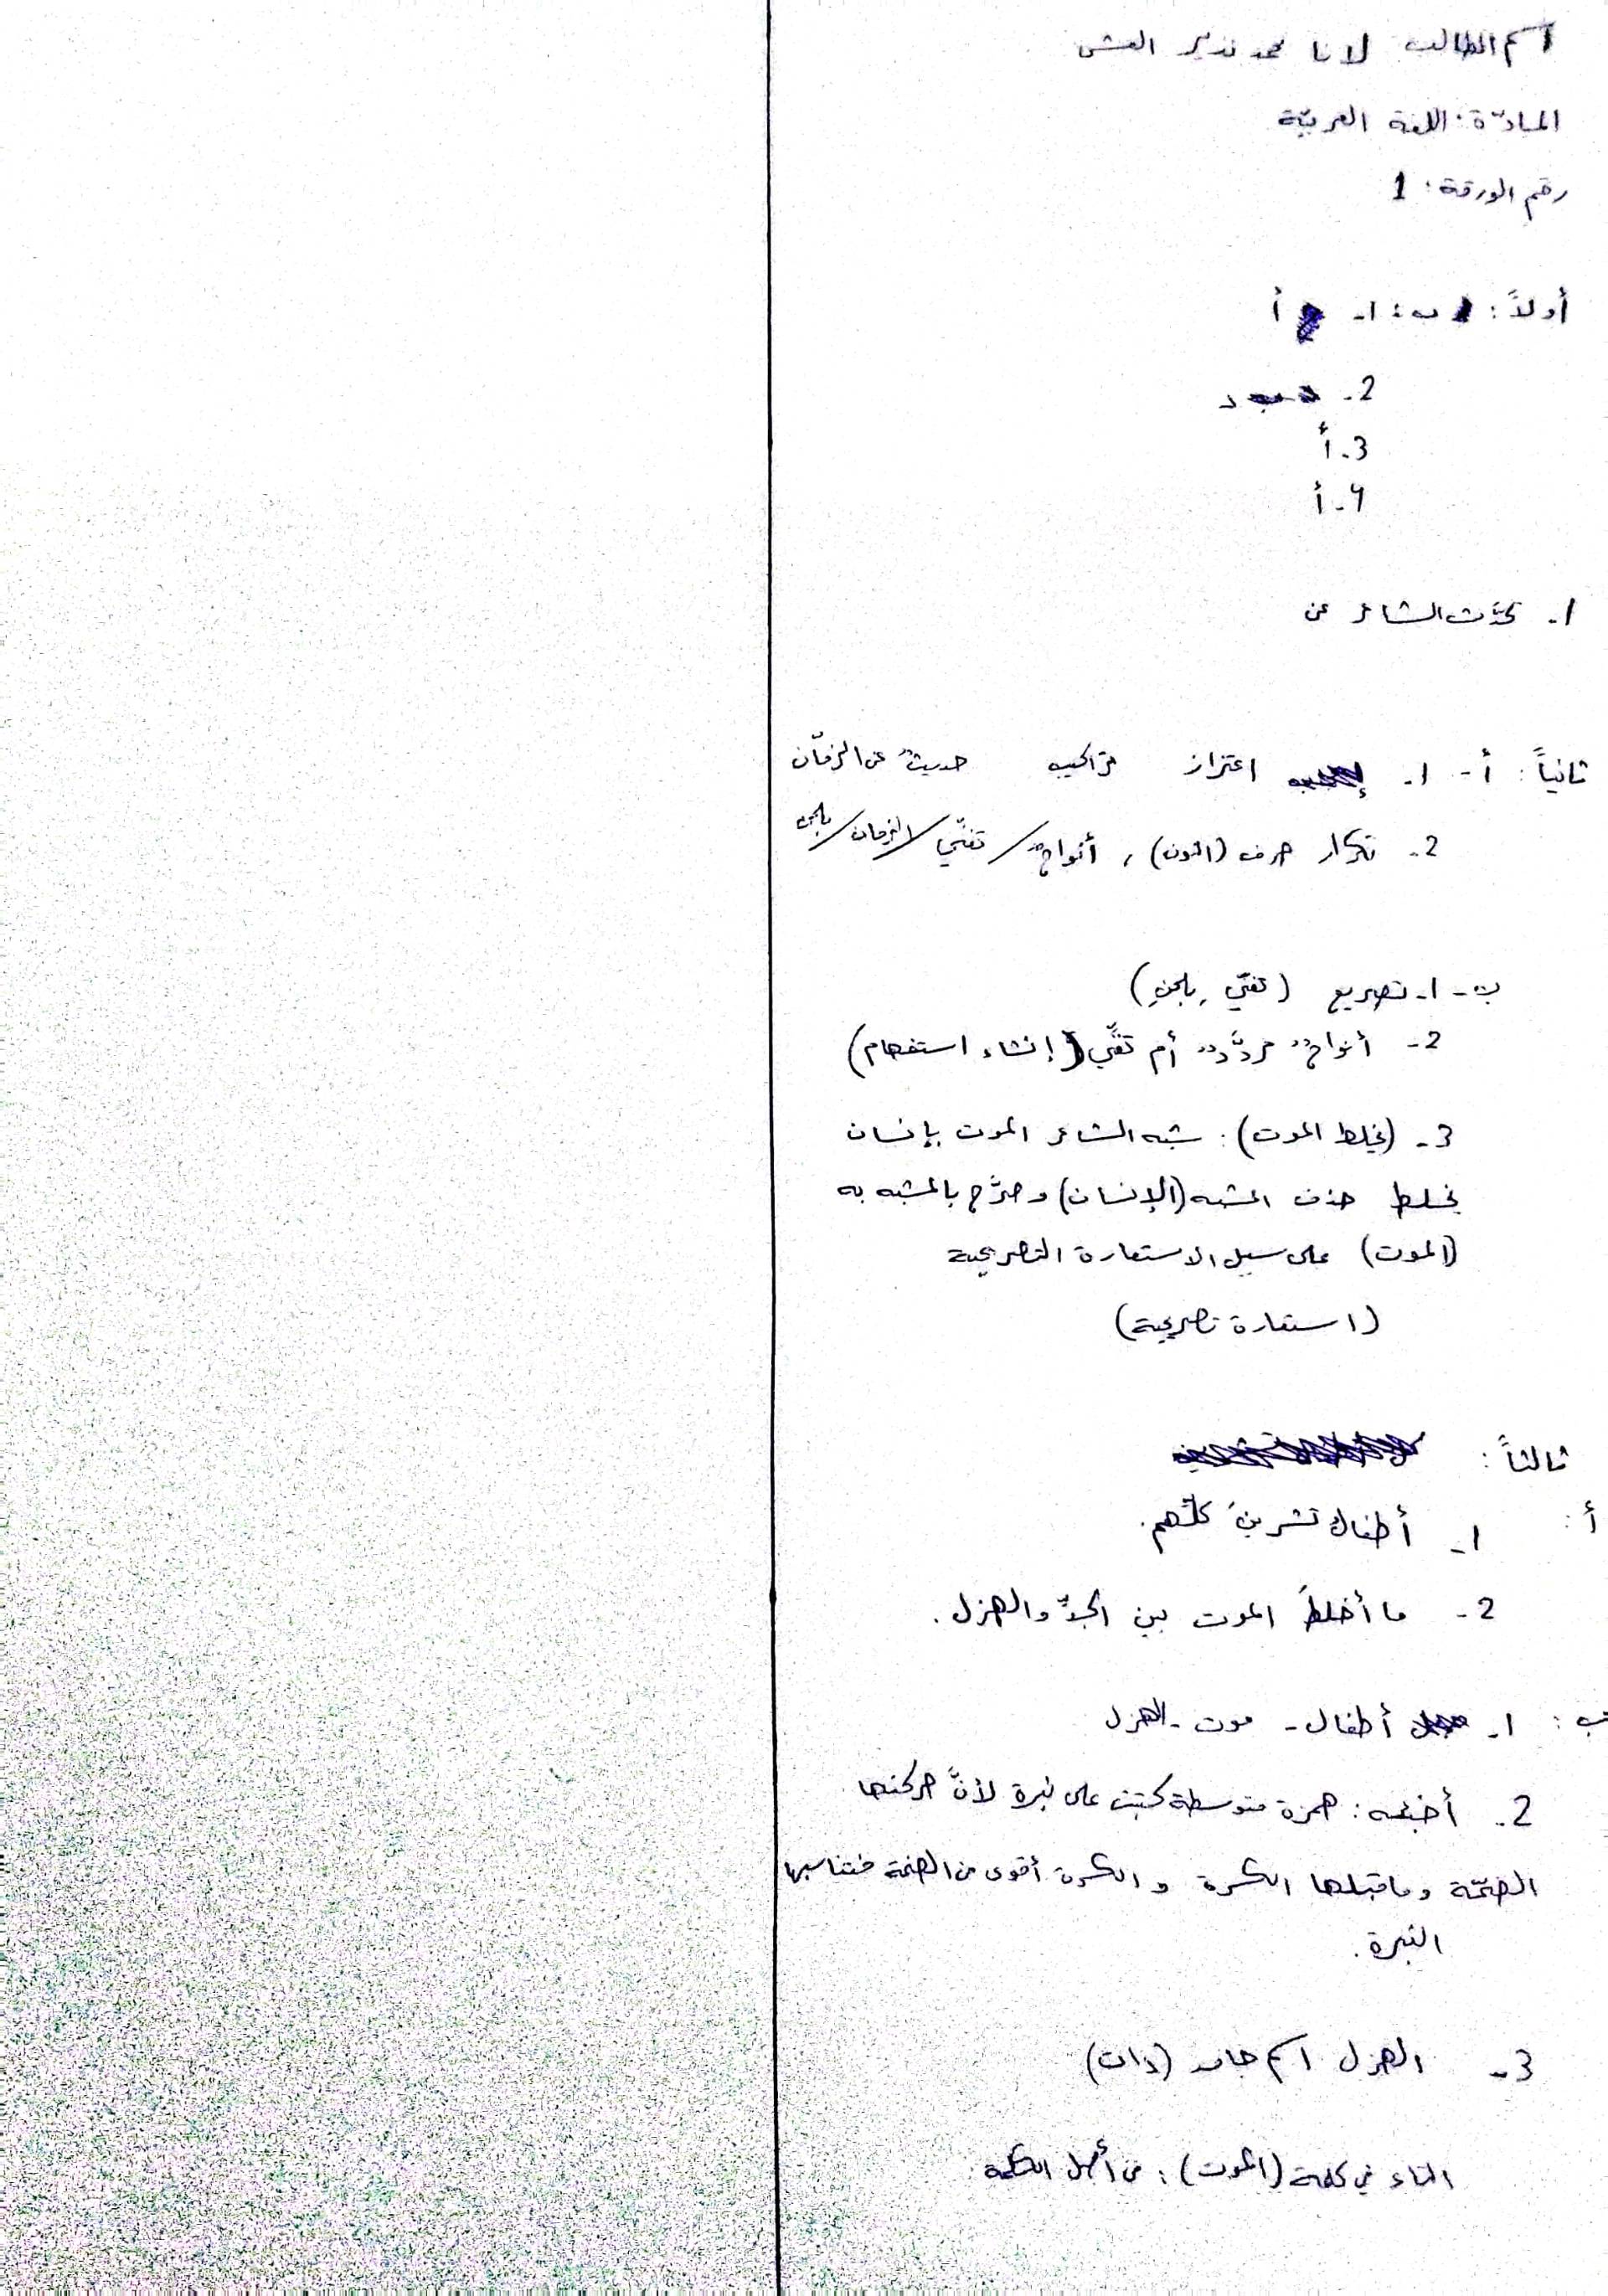 اسم الطالب: لانا محمد نذير العش
المادّة: اللغة العربيّة
رقم الورقة: 1
أولاً: ب: 1- أ
2- د
3- أ
4- أ
1- تحدَّث الشاعر عن
ثانياً: أ- 1- اعتزاز تراكيب حديثٌ عن الزمّان
2- تكرار حرف (النون) ، أنواحٌ / تغنّي / الزمان / بلحن
ب- 1- تصريع (تغنّي، بلحنِ)
2- أنواحٌ مردَّدٌ أم تغنَّي (إنشاء استفهام)
3- (يخلط الموت): شبه الشاعر الموت بإنسان
يخلط حذف المشبه (الإنسان) وصرَّح بالمشبه به
(الموت) على سبيل الاستعارة التصريحية
(استعارة تصريحية)
ثالثاً:
أ: 1- أطفالُ تشرينَ كلّهم.
2- ما أخلطَ الموت بين الجدِّ والهزل.
ب: 1- أطفال - موت - الهزل
2- أخبئه: همزة متوسطة كتبت على نبرة لأنَّ حركتها
الضمّة وما قبلها الكسرة والكسرة أقوى من الضمة فتناسبها
النبرة.
3- الهزل اسم جامد (ذات)
التاء في كلمة (الموت): من أصل الكلمة.